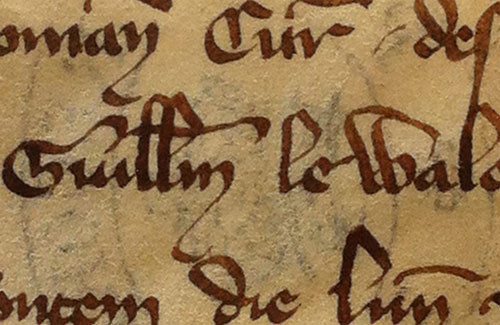 oman Cur des
Guillm le Wale
die lun